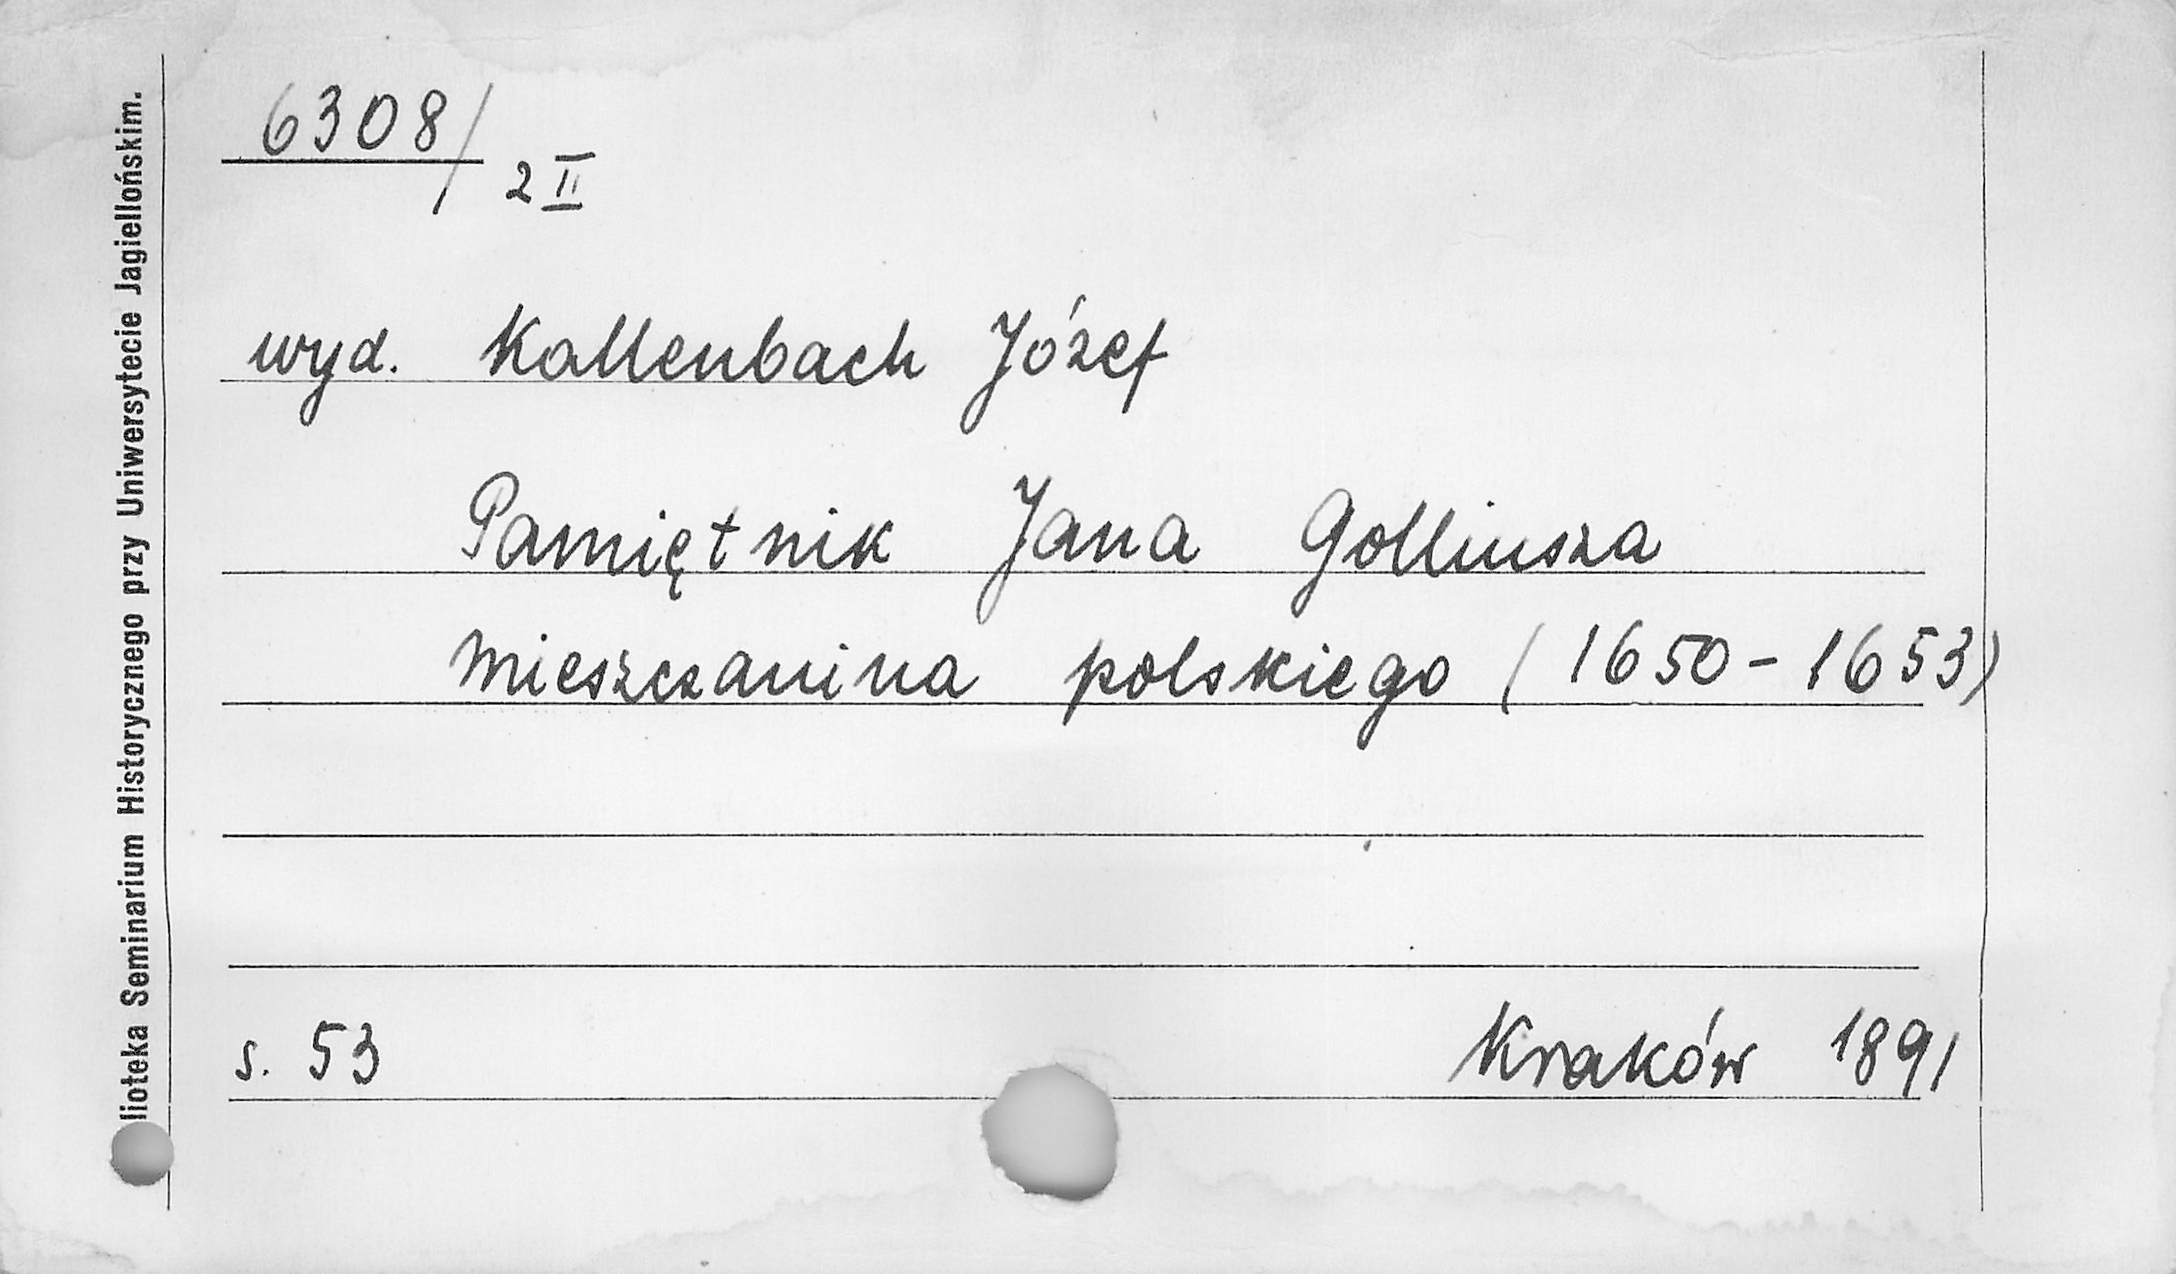 lioteka Seminarium Historycznego przy Uniwersytecie Jagiellońskim.
6308/2 II
wyd. Kallenbach Józef
Pamiętnik Jana Golliusza
mieszczanina polskiego (1650-1653)
s. 53 Kraków 1891